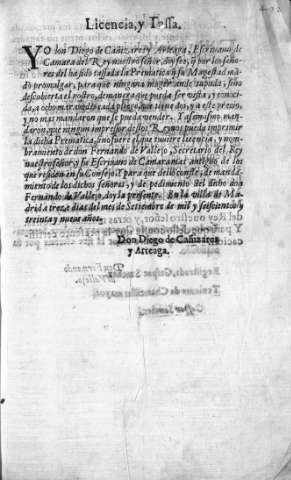 Licencia, y Tassa.
YO don Diego de Cañizares y Arteaga, Escriuano de
Camara del Rey nuestro señor, doy fee, q̃ por los seño-
res del ha sido tassada la Prematica en su Magestad mã
dò promulgar, para que ninguna muger ande tapada, sino
descubierta el rostro, de manera que pueda ser vista, y conoci-
da, a ocho marauedis cada pliego, que tiene dos, y a este precio,
y no mas mandaron que se pueda vender. Y assimismo man-
daron, que ningun impressor destos Reynos pueda imprimir
la dicha Prematica, sino fuere el que tuuiere licencia, y nom-
bramiento de don Fernando de Vallejo, Secretario del Rey
nuestro señor, y su Escriuano de Camara mas antiguo de los
que residen en su Consejo. Y para que dello conste, de manda-
miento de los dichos señores, y de pedimiento del dicho don
Fernando de Vallejo, doy la presente. En la villa de Ma-
drid a treze dias del mes de Setiembre de mil y seiscientos y
treinta y nueue años.
Don Diego de Cañizares
y Arteaga.